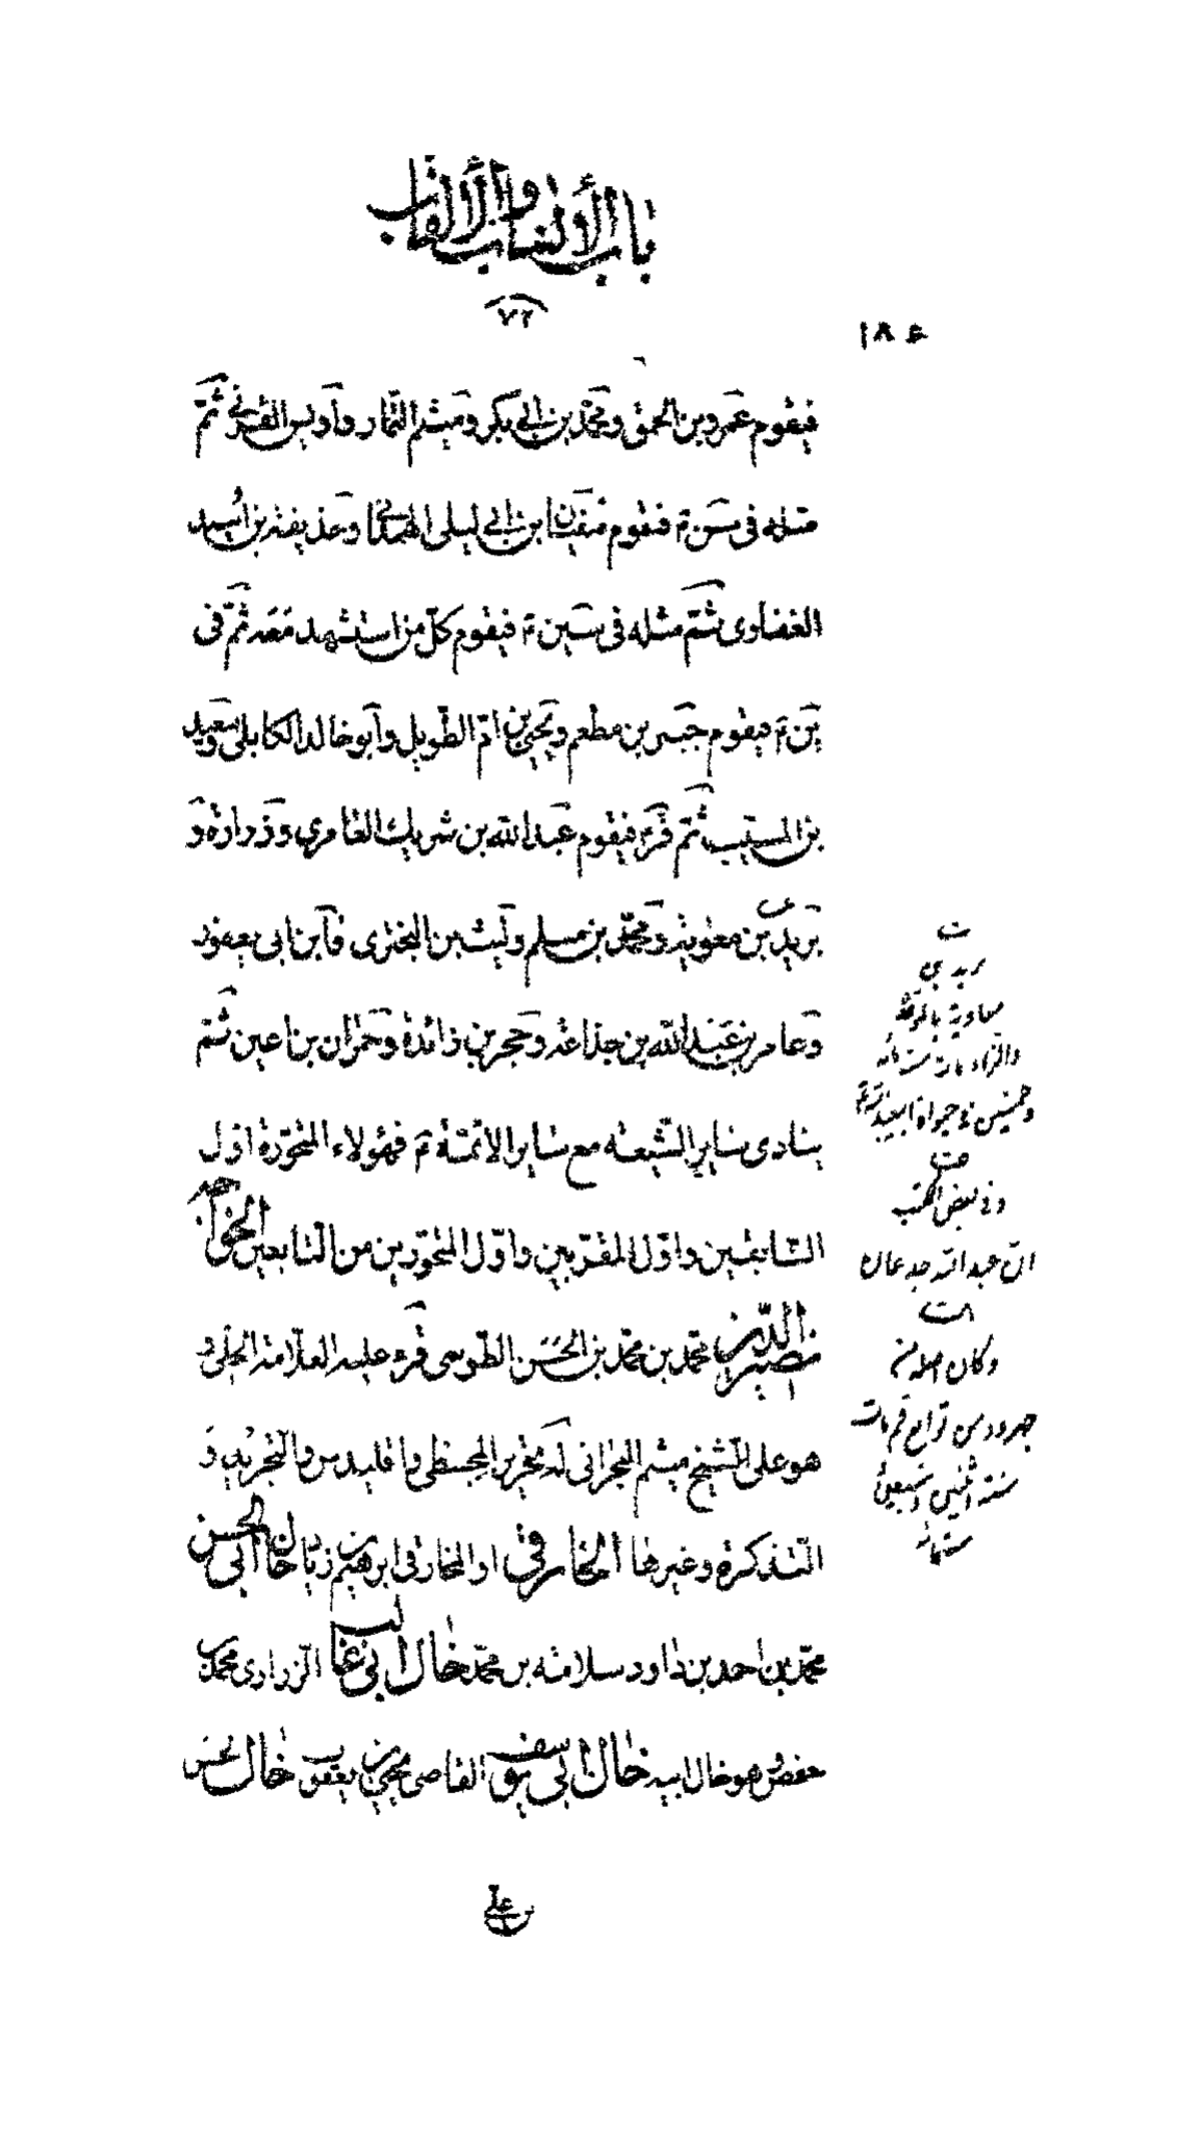 باب الأنساب والألقاب
٧٢
١٨٤
فيقوم عمرو بن الحمق ومحمّد بن ابي بكر وميثم التمّار واويس القرني ثمّ
مثله في سن ع فيقوم سفيان ابن ابي ليلى الهمداني وحذيفة بن اُسيد
الغفاري ثمّ مثله في سين ع فيقوم كلّ من استشهد معه ثمّ في
ين ع فيقوم جبير بن مطعم ويحيى بن امّ الطّويل وابو خالد الكابلي وسعيد
بن المسيّب ثمّ قر ع فيقوم عبد الله بن شريك العامري وزرارة و
بريد بن معوية ومحمّد بن مسلم وليث بن البختري وابن ابي يعفور
وعامر بن عبد الله بن جذاعة وحجر بن زائدة وحمران بن اعين ثمّ
ينادى ساير الشّيعة مع ساير الائمّة ع فهؤلاء المتحوّرة اوّل
السّابقين واوّل المقرّبين واوّل المتحوّرين من التّابعين الخواجه
نصير الدّين محمّد بن محمّد بن الحسن الطّوسي قرء عليه العلّامة الحلّي و
هو على الشّيخ ميثم البحراني له تحرير المجسطى واقليدس والتّجريد و
التّذكرة وغيرها الخارقي او المخارقي ابرهيم بن زياد خال ابي الحسن
محمّد بن احمد بن داود سلامة بن محمّد خال ابي غالب الزراري محمّد بن
جعفر وهو خال ابيه خال ابي يوسف القاضي يحيى بن يعقوب خال الحسن
بن علي
ت
بريد بن
معاوية بالموحّدة
والرّاء مات سنة مائة
وخمسين
وفي بعض الكتب
انّ عبد الله جدعان
وكان اصله من
جهرود من توابع قم مات
سنة اثنين وسبعين
ستمائة